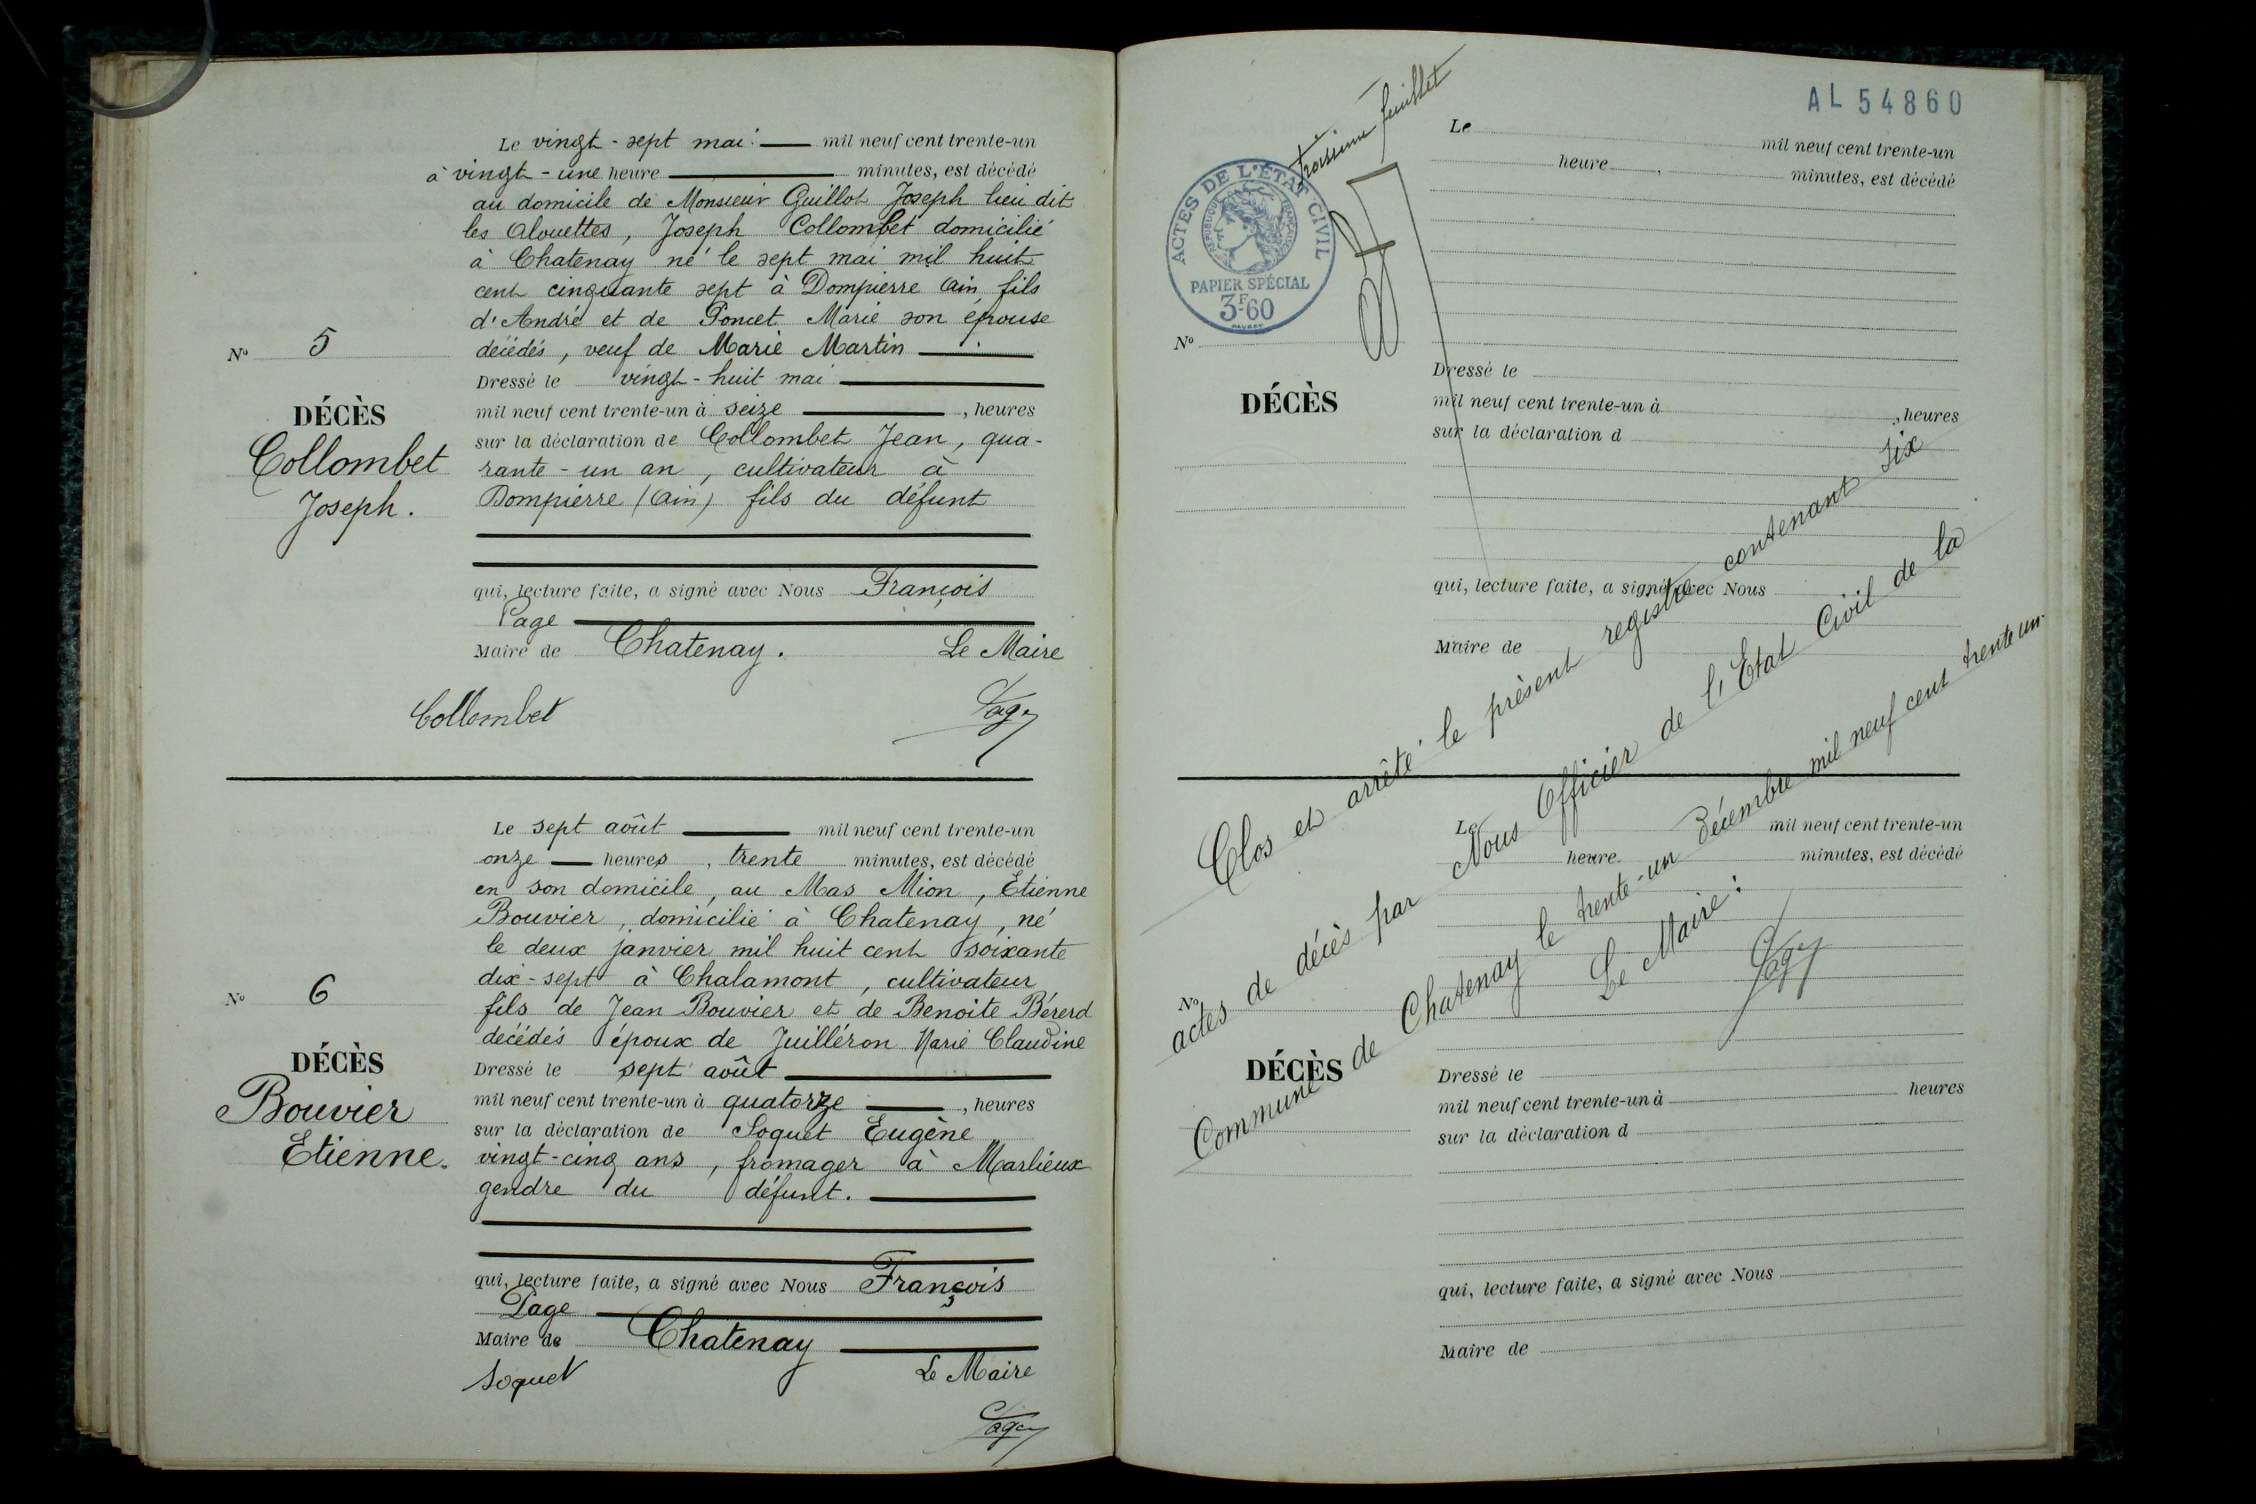 Le vingt-sept mai mil neuf cent trente-un
à vingt-une heure minutes, est décédé
au domicile de Monsieur Guillot Joseph lieu dit
les Alouettes, Joseph Collombet domicilié
à Chatenay né le sept mai mil huit
cent cinquante sept à Dompierre Ain, fils
d'André et de Poncet Marie son épouse
décédés, veuf de Marie Martin
Dressé le vingt-huit mai
mil neuf cent trente-un à seize, heures
sur la déclaration de Collombet Jean, qua-
rante-un an, cultivateur à
Dompierre (Ain) fils du défunt
qui, lecture faite, a signé avec Nous François
Page
Maire de Chatenay. Le Maire
Collombet Page
No 5
DÉCÈS
Collombet
Joseph.
Le sept août mil neuf cent trente-un
onze heures, trente minutes, est décédé
en son domicile, au Mas Mion, Etienne
Bouvier, domicilié à Chatenay, né
le deux janvier mil huit cent soixante
dix-sept à Chalamont, cultivateur
fils de Jean Bouvier et de Benoite Bérerd
décédés époux de Juilléron Marie Claudine
Dressé le sept août
mil neuf cent trente-un à quatorze, heures
sur la déclaration de Soquet Eugène
vingt-cinq ans, fromager à Marlieux
gendre du défunt.
qui, lecture faite, a signé avec Nous François
Page
Maire de Chatenay
Soquet Le Maire
Page
No 6
DÉCÈS
Bouvier
Etienne.
AL 54860
troisième feuillet
ACTES DE L'ÉTAT CIVIL
RÉPUBLIQUE FRANÇAISE
PAPIER SPÉCIAL
3F60
Le mil neuf cent trente-un
heure, minutes, est décédé
No
DÉCÈS
Dressé le
mil neuf cent trente-un à, heures
sur la déclaration d
qui, lecture faite, a signé avec Nous
Maire de
Clos et arrêté le présent registre contenant six
actes de décès par Nous Officier de l'Etat Civil de la
Commune de Chatenay le trente-un décembre mil neuf cent trente un.
Le Maire:
Page
Le mil neuf cent trente-un
heure minutes, est décédé
No
DÉCÈS
Dressé le
mil neuf cent trente-un à heures
sur la déclaration d
qui, lecture faite, a signé avec Nous
Maire de